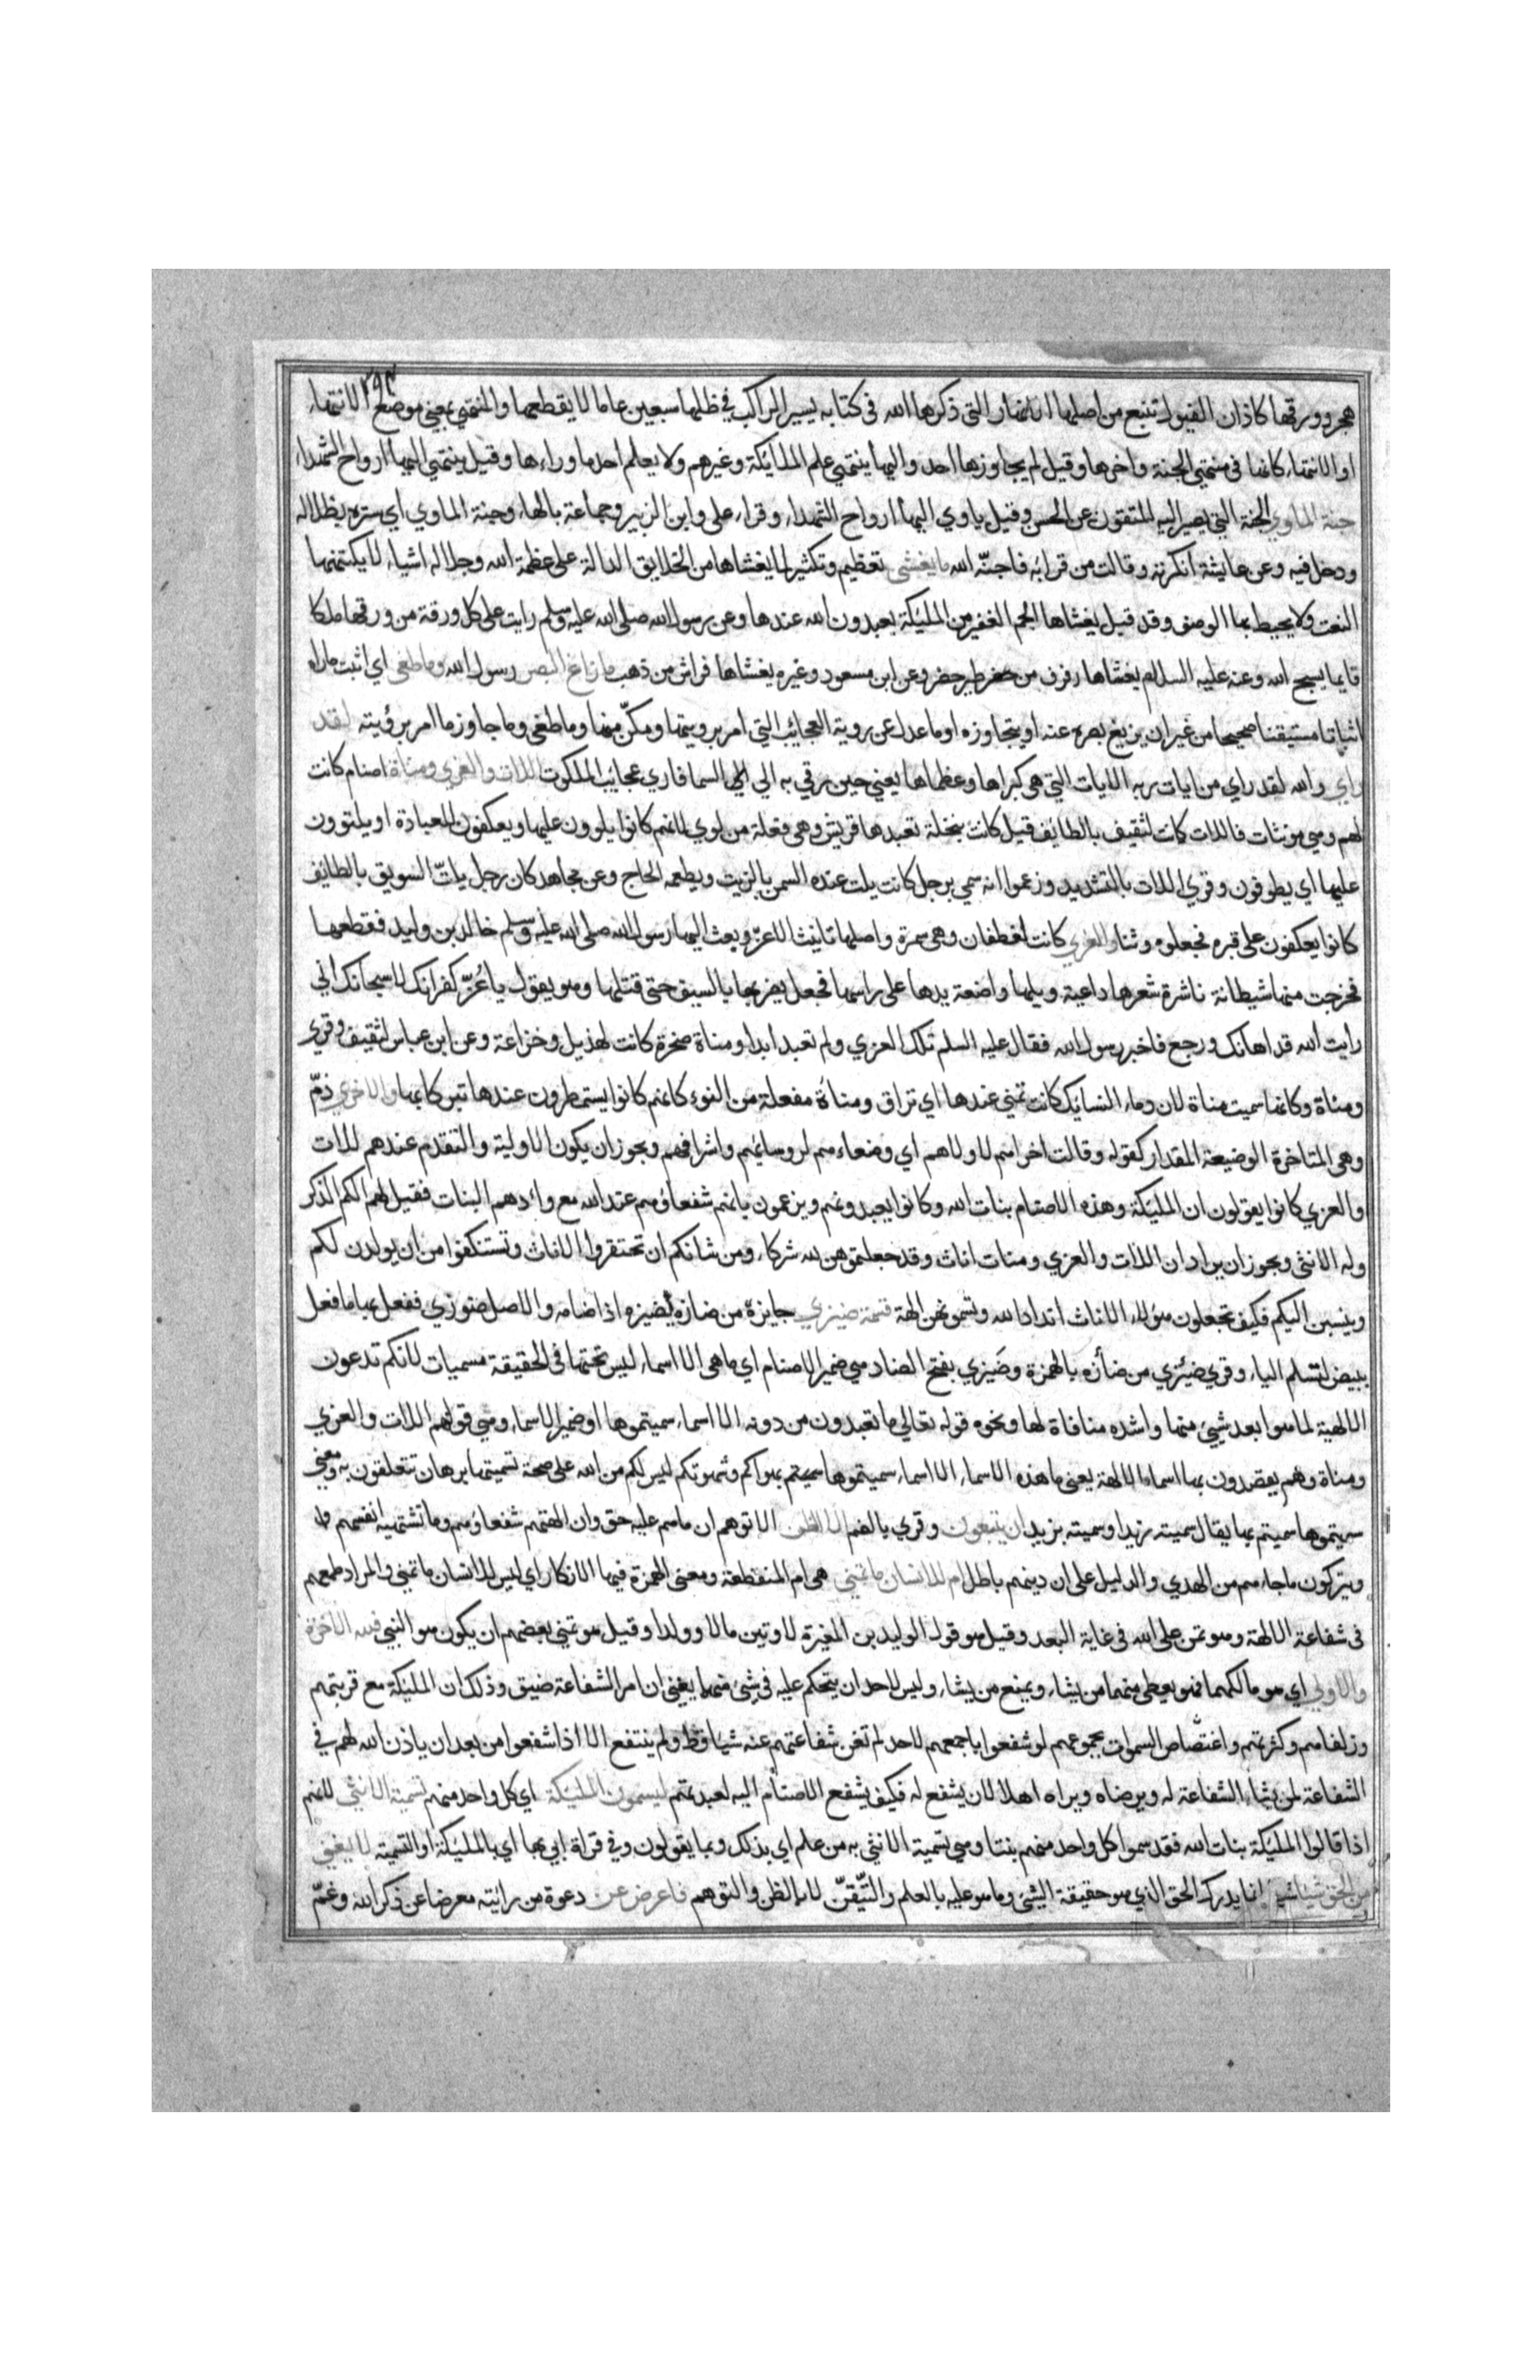 هجر وورقها كاذان الفيول تنبع من اصلها الانهار التي ذكرها الله في كتابه يسير الراكب في ظلها سبعين عاما لا يقطعها والمنتهي بمعني موضع الانتهاء
او الانتهاء كانها في منتهي الجنة واخرها وقيل لم يجاوزها احد واليها ينتهي علم الملائكة وغيرهم ولا يعلم احد ما وراءها وقيل ينتهي اليها ارواح الشهداء
جنة الماوي الجنة التي يصير اليه المتقون عن الحسن وقيل ياوي اليها ارواح الشهداء وقراء علي وابن الزبير وجماعة بالهاء وجنة الماوي اي ستره بظلاله
ودخل فيه وعن عايشة انكرته وقالت من قرا به فاجنّه الله ما يغشى تعظيم وتكثير لما يغشاها من الخلايق الدالة على عظمة الله وجلاله اشياء لا يكتنهها
النعت ولا يحيط بها الوصف وقد قيل يغشاها الجم الغفير من المليكة يعبدون الله عندها وعن رسول الله صلى الله عليه وسلم رايت على كل ورقة من ورقها ملكا
قايما يسبح الله وعنه عليه السلام يغشاها رفرف من طير خضر وعن ابن مسعود وغيره يغشاها فراش من ذهب ما زاغ البصر رسول الله وما طغى اي اثبت ما راه
اثباتا مستيقنا صحيحا من غير ان يزيغ بصره عنه او يتجاوزه او ما عدل عن روية العجايب التي امر برويتها ومكّن منها وما طغى وما جاوز ما امر برؤيته لقد
راي والله لقد راي من ايات ربه الايات التي هي كبراها وعظماها يعني حين رقي به الي السما فاري عجايب الملكوت اللات والعزي ومناة اصنام كانت
لهم وهي مونثات فاللات كانت لثقيف بالطايف قيل كانت بنخلة تعبدها قريش وهي فعلة من لوي لانهم كانوا يلوون عليها ويعكفون للعبادة او يلتوون
عليها اي يطوفون وقري اللات بالتشديد وزعموا انه سمي برجل كانت يلت عنده السمن بالزيت ويطعمه الحاج وعن مجاهد كان رجل يلتّ السويق بالطايف
كانوا يعكفون على قبره فجعلوه وثنا والعزي كانت لغطفان وهي سمرة واصلها تانيث الاعز وبعث اليها رسول الله صلى الله عليه وسلم خالد بن وليد فقطعها
فخرجت منها شيطانة ناشرة شعرها داعية ويلها واضعة يدها على راسها فجعل يضربها بالسيف حتى قتلها وهو يقول يا عُزّ كفرانك لا سبحانك اني
رايت الله قد اهانك ورجع فاخبر رسول الله فقال عليه السلم تلك العزي ولم تعبد ابدا ومناة صخرة كانت لهذيل وخزاعة وعن ابن عباس لثقيف وقري
ومناة وكانها سميت مناة لان دماء النسايك كانت تمني عندها اي تراق ومناة مفعلة من النوء كانهم كانوا يستمطرون عندها تبركا بها والاخري ذمّ
وهي المتاخرة الوضيعة المقدار كقوله وقالت اخراهم لاولاهم اي وضعاءهم لروسائهم واشرافهم ويجوز ان يكون الاولية والتقدم عندهم للات
والعزي كانوا يقولون ان المليكة وهذه الاصنام بنات الله وكانوا يعبدونهم ويزعمون بانهم شفعاؤهم عند الله مع وادهم البنات فقيل لهم الكم الذكر
وله الانثى ويجوز ان يراد ان اللات والعزي ومنات اناث وقد جعلتموهن لله شركاء ومن شانكم ان تحتقروا الاناث وتستنكفوا من ان يولدن لكم
وينسبن اليكم فكيف تجعلون هؤلاء الاناث اندادا لله وتسمونهن الهة قسمة ضيزي جايزة من ضازه يضيزه اذا ضامه والاصل ضوزي ففعل بها ما فعل
ببيض لتسلم الياء وقري ضئزي من ضأزه بالهمزة وضَيزي بفتح الضاد هي ضمير الاصنام اي ما هي الا اسماء ليس تحتها في الحقيقة مسميات لانكم تدعون
الالهية لما هو ابعد شيئ منها واشده منافاة لها ونحوه قوله تعالي ما تعبدون من دونه الا اسماء سميتموها او ضمير الاسماء وهي قولهم اللات والعزي
ومناة وهم يقصدون بها اسماء الالهة يعني ما هذه الاسماء الا اسماء سميتموها سميتم بهواكم وشهوتكم ليس لكم من الله على صحة تسميتها برهان تتعلقون به ومعني
سميتموها سميتم بها يقال سميته زيدا وسميته بزيد ان يتبعون وقري بالضم الا الظن الا توهم ان ما هم عليه حق وان الهتهم شفعاؤهم وما تشتهيه انفسهم
ويتركون ما جاءهم من الهدي والدليل على ان دينهم باطل ام للانسان ما تمني هي ام المنقطعة ومعنى الهمزة فيها الانكار اي ليس للانسان ما تمني والمراد طمعهم
في شفاعة الالهة وهو تمن على الله في غاية البعد وقيل هو قول الوليد بن المغيرة لاوتين مالا وولدا وقيل هو تمني بعضهم ان يكون هو النبي فلله الاخرة
والاولي اي هو مالكهما فهو يعطي منهما من يشاء ويمنع من يشاء وليس لاحد ان يتحكم عليه في شئ منهما يعني ان امر الشفاعة ضيق وذلك ان المليكة مع قربتهم
وزلفاهم وكثرتهم واغتصاص السموات بجموعهم لو شفعوا باجمعهم لاحد لم تغن شفاعتهم عنه شيئا قط ولم ينتفع الا اذا شفعوا من بعد ان ياذن الله لهم في
الشفاعة لمن يشاء الشفاعة له ويرضاه ويراه اهلا لان يشفع له فكيف يشفع الاصنام اليه لعبدتهم ليسمون المليكة اي كل واحد منهم تسمية الانثى لانهم
اذا قالوا المليكة بنات الله فقد سموا كل واحد منهم بنتا وهي تسمية الانثي به من علم اي بذلك وبما يقولون وفي قراة ابي بها اي بالمليكة او التسمية لا يغني
من الحق شيئا انما يدرك الحق الذي هو حقيقة الشئ وما هو عليه بالعلم والتّيقّن لا بالظن والتوهم فاعرض عن دعوة من رايته معرضا عن ذكر الله وغمّ